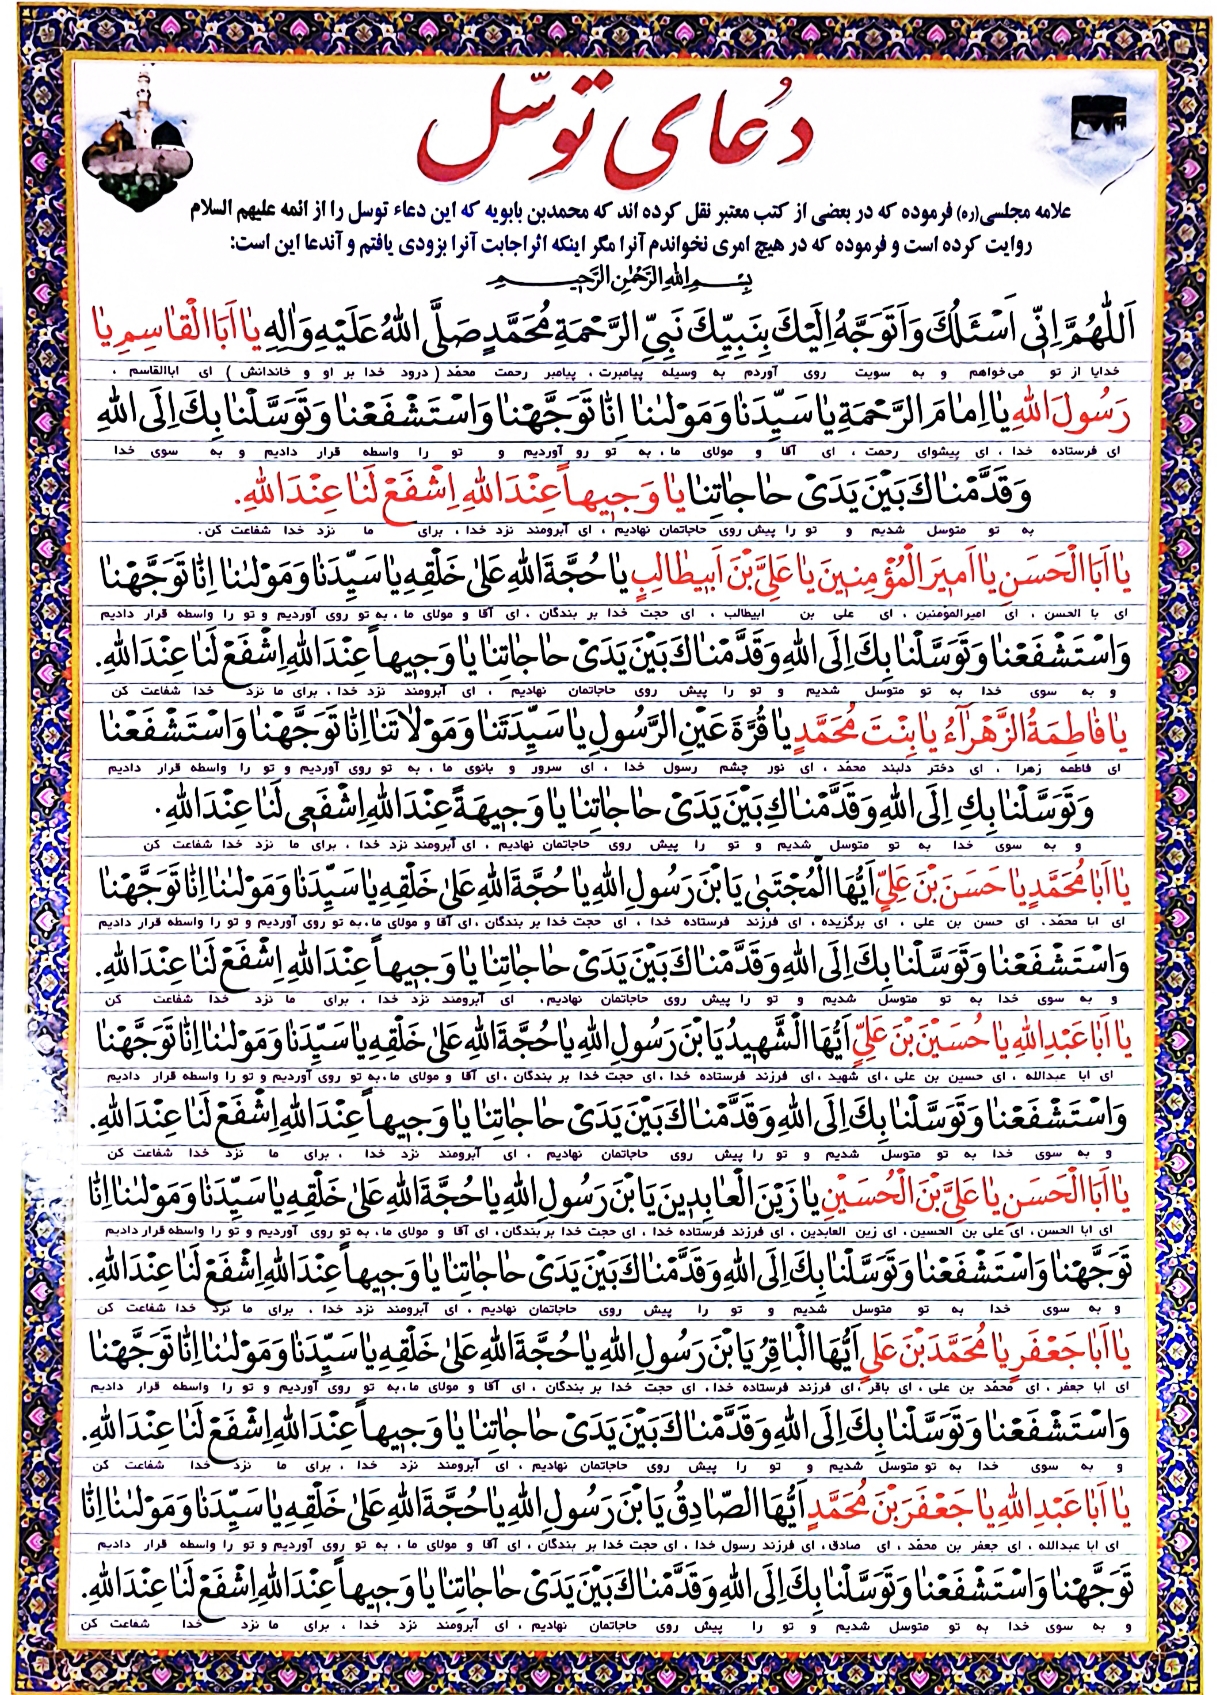 دُعای توسّل
علامه مجلسی (ره) فرموده که در بعضی از کتب معتبر نقل کرده اند که محمدبن بابویه که این دعاء توسل را از ائمه علیهم السلام
روایت کرده است و فرموده که در هیچ امری نخواندم آنرا مگر اینکه اثر اجابت آنرا بزودی یافتم و آندعا این است:
بِسْمِ اللهِ الرَّحْمٰنِ الرَّحِیمِ
اَللّٰهُمَّ اِنّٖی اَسْئَلُكَ وَ اَتَوَجَّهُ اِلَیْكَ بِنَبِیِّكَ نَبِیِّ الرَّحْمَةِ مُحَمَّدٍ صَلَّی اللهُ عَلَیْهِ وَ اٰلِهِ یٰا اَبَا الْقٰاسِمِ یٰا
خدایا از تو می‌خواهم و به سویت روی آوردم به وسیله پیامبرت، پیامبر رحمت محمّد (درود خدا بر او و خاندانش) ای اباالقاسم ،
رَسُولَ اللهِ یٰا اِمٰامَ الرَّحْمَةِ یٰا سَیِّدَنٰا وَ مَوْلٰینٰا اِنّٰا تَوَجَّهْنٰا وَ اسْتَشْفَعْنٰا وَ تَوَسَّلْنٰا بِكَ اِلَی اللهِ
ای فرستاده خدا ، ای پیشوای رحمت ، ای آقا و مولای ما، به تو رو آوردیم و تو را واسطه قرار دادیم و به سوی خدا
وَ قَدَّمْنٰاكَ بَیْنَ یَدَیْ حٰاجٰاتِنٰا یٰا وَجٖیهاً عِنْدَ اللهِ اِشْفَعْ لَنٰا عِنْدَ اللهِ.
به تو متوسل شدیم و تو را پیش روی حاجاتمان نهادیم ، ای آبرومند نزد خدا، برای ما نزد خدا شفاعت کن.
یٰا اَبَا الْحَسَنِ یٰا اَمٖیرَ الْمُؤْمِنٖینَ یٰا عَلِیَّ بْنَ اَبٖیطٰالِبٍ یٰا حُجَّةَ اللهِ عَلیٰ خَلْقِهِ یٰا سَیِّدَنٰا وَ مَوْلٰینٰا اِنّٰا تَوَجَّهْنٰا
ای با الحسن ، ای امیرالمومنین ، ای علی بن ابیطالب ، ای حجت خدا بر بندگان ، ای آقا و مولای ما، به تو روی آوردیم و تو را واسطه قرار دادیم
وَ اسْتَشْفَعْنٰا وَ تَوَسَّلْنٰا بِكَ اِلَی اللهِ وَ قَدَّمْنٰاكَ بَیْنَ یَدَیْ حٰاجٰاتِنٰا یٰا وَجٖیهاً عِنْدَ اللهِ اِشْفَعْ لَنٰا عِنْدَ اللهِ.
و به سوی خدا به تو متوسل شدیم و تو را پیش روی حاجاتمان نهادیم ، ای آبرومند نزد خدا ، برای ما نزد خدا شفاعت کن
یٰا فٰاطِمَةُ الزَّهْرٰآءُ یٰا بِنْتَ مُحَمَّدٍ یٰا قُرَّةَ عَیْنِ الرَّسُولِ یٰا سَیِّدَتَنٰا وَ مَوْلٰاتَنٰا اِنّٰا تَوَجَّهْنٰا وَ اسْتَشْفَعْنٰا
ای فاطمه زهرا ، ای دختر دلبند محمّد ، ای نور چشم رسول خدا ، ای سرور و بانوی ما ، به تو روی آوردیم و تو را واسطه قرار دادیم
وَ تَوَسَّلْنٰا بِكِ اِلَی اللهِ وَ قَدَّمْنٰاكِ بَیْنَ یَدَیْ حٰاجٰاتِنٰا یٰا وَجٖیهَةً عِنْدَ اللهِ اِشْفَعٖی لَنٰا عِنْدَ اللهِ.
و به سوی خدا به تو متوسل شدیم و تو را پیش روی حاجاتمان نهادیم ، ای آبرومند نزد خدا ، برای ما نزد خدا شفاعت کن
یٰا اَبٰا مُحَمَّدٍ یٰا حَسَنَ بْنَ عَلِیٍّ اَیُّهَا الْمُجْتَبیٰ یَا بْنَ رَسُولِ اللهِ یٰا حُجَّةَ اللهِ عَلیٰ خَلْقِهِ یٰا سَیِّدَنٰا وَ مَوْلٰینٰا اِنّٰا تَوَجَّهْنٰا
ای ابا محمّد، ای حسن بن علی ، ای برگزیده ، ای فرزند فرستاده خدا ، ای حجت خدا بر بندگان، ای آقا و مولای ما، به تو روی آوردیم و تو را واسطه قرار دادیم
وَ اسْتَشْفَعْنٰا وَ تَوَسَّلْنٰا بِكَ اِلَی اللهِ وَ قَدَّمْنٰاكَ بَیْنَ یَدَیْ حٰاجٰاتِنٰا یٰا وَجٖیهاً عِنْدَ اللهِ اِشْفَعْ لَنٰا عِنْدَ اللهِ.
و به سوی خدا به تو متوسل شدیم و تو را پیش روی حاجاتمان نهادیم، ای آبرومند نزد خدا ، برای ما نزد خدا شفاعت کن
یٰا اَبٰا عَبْدِ اللهِ یٰا حُسَیْنَ بْنَ عَلِیٍّ اَیُّهَا الشَّهٖیدُ یَا بْنَ رَسُولِ اللهِ یٰا حُجَّةَ اللهِ عَلیٰ خَلْقِهِ یٰا سَیِّدَنٰا وَ مَوْلٰینٰا اِنّٰا تَوَجَّهْنٰا
ای ابا عبدالله ، ای حسین بن علی ، ای شهید ، ای فرزند فرستاده خدا ، ای حجت خدا بر بندگان ، ای آقا و مولای ما، به تو روی آوردیم و تو را واسطه قرار دادیم
وَ اسْتَشْفَعْنٰا وَ تَوَسَّلْنٰا بِكَ اِلَی اللهِ وَ قَدَّمْنٰاكَ بَیْنَ یَدَیْ حٰاجٰاتِنٰا یٰا وَجٖیهاً عِنْدَ اللهِ اِشْفَعْ لَنٰا عِنْدَ اللهِ.
و به سوی خدا به تو متوسل شدیم و تو را پیش روی حاجاتمان نهادیم ، ای آبرومند نزد خدا ، برای ما نزد خدا شفاعت کن
یٰا اَبَا الْحَسَنِ یٰا عَلِیَّ بْنَ الْحُسَیْنِ یٰا زَیْنَ الْعٰابِدٖینَ یَا بْنَ رَسُولِ اللهِ یٰا حُجَّةَ اللهِ عَلیٰ خَلْقِهِ یٰا سَیِّدَنٰا وَ مَوْلٰینٰا اِنّٰا
ای ابا الحسن، ای علی بن الحسین، ای زین العابدین ، ای فرزند فرستاده خدا ، ای حجت خدا بر بندگان، ای آقا و مولای ما، به تو روی آوردیم و تو را واسطه قرار دادیم
تَوَجَّهْنٰا وَ اسْتَشْفَعْنٰا وَ تَوَسَّلْنٰا بِكَ اِلَی اللهِ وَ قَدَّمْنٰاكَ بَیْنَ یَدَیْ حٰاجٰاتِنٰا یٰا وَجٖیهاً عِنْدَ اللهِ اِشْفَعْ لَنٰا عِنْدَ اللهِ.
و به سوی خدا به تو متوسل شدیم و تو را پیش روی حاجاتمان نهادیم ، ای آبرومند نزد خدا ، برای ما نزد خدا شفاعت کن
یٰا اَبٰا جَعْفَرٍ یٰا مُحَمَّدَ بْنَ عَلِیٍ اَیُّهَا الْبٰاقِرُ یَا بْنَ رَسُولِ اللهِ یٰا حُجَّةَ اللهِ عَلیٰ خَلْقِهِ یٰا سَیِّدَنٰا وَ مَوْلٰینٰا اِنّٰا تَوَجَّهْنٰا
ای ابا جعفر ، ای محمّد بن علی ، ای باقر ، ای فرزند فرستاده خدا، ای حجت خدا بر بندگان ، ای آقا و مولای ما، به تو روی آوردیم و تو را واسطه قرار دادیم
وَ اسْتَشْفَعْنٰا وَ تَوَسَّلْنٰا بِكَ اِلَی اللهِ وَ قَدَّمْنٰاكَ بَیْنَ یَدَیْ حٰاجٰاتِنٰا یٰا وَجٖیهاً عِنْدَ اللهِ اِشْفَعْ لَنٰا عِنْدَ اللهِ.
و به سوی خدا به تو متوسل شدیم و تو را پیش روی حاجاتمان نهادیم ، ای آبرومند نزد خدا ، برای ما نزد خدا شفاعت کن
یٰا اَبٰا عَبْدِ اللهِ یٰا جَعْفَرَ بْنَ مُحَمَّدٍ اَیُّهَا الصّٰادِقُ یَا بْنَ رَسُولِ اللهِ یٰا حُجَّةَ اللهِ عَلیٰ خَلْقِهِ یٰا سَیِّدَنٰا وَ مَوْلٰینٰا اِنّٰا
ای ابا عبدالله ، ای جعفر بن محمّد ، ای صادق، ای فرزند رسول خدا ، ای حجت خدا بر بندگان ، ای آقا و مولای ما ، به تو روی آوردیم و تو را واسطه قرار دادیم
تَوَجَّهْنٰا وَ اسْتَشْفَعْنٰا وَ تَوَسَّلْنٰا بِكَ اِلَی اللهِ وَ قَدَّمْنٰاكَ بَیْنَ یَدَیْ حٰاجٰاتِنٰا یٰا وَجٖیهاً عِنْدَ اللهِ اِشْفَعْ لَنٰا عِنْدَ اللهِ.
و به سوی خدا به تو متوسل شدیم و تو را پیش روی حاجاتمان نهادیم ، ای آبرومند نزد خدا ، برای ما نزد خدا شفاعت کن